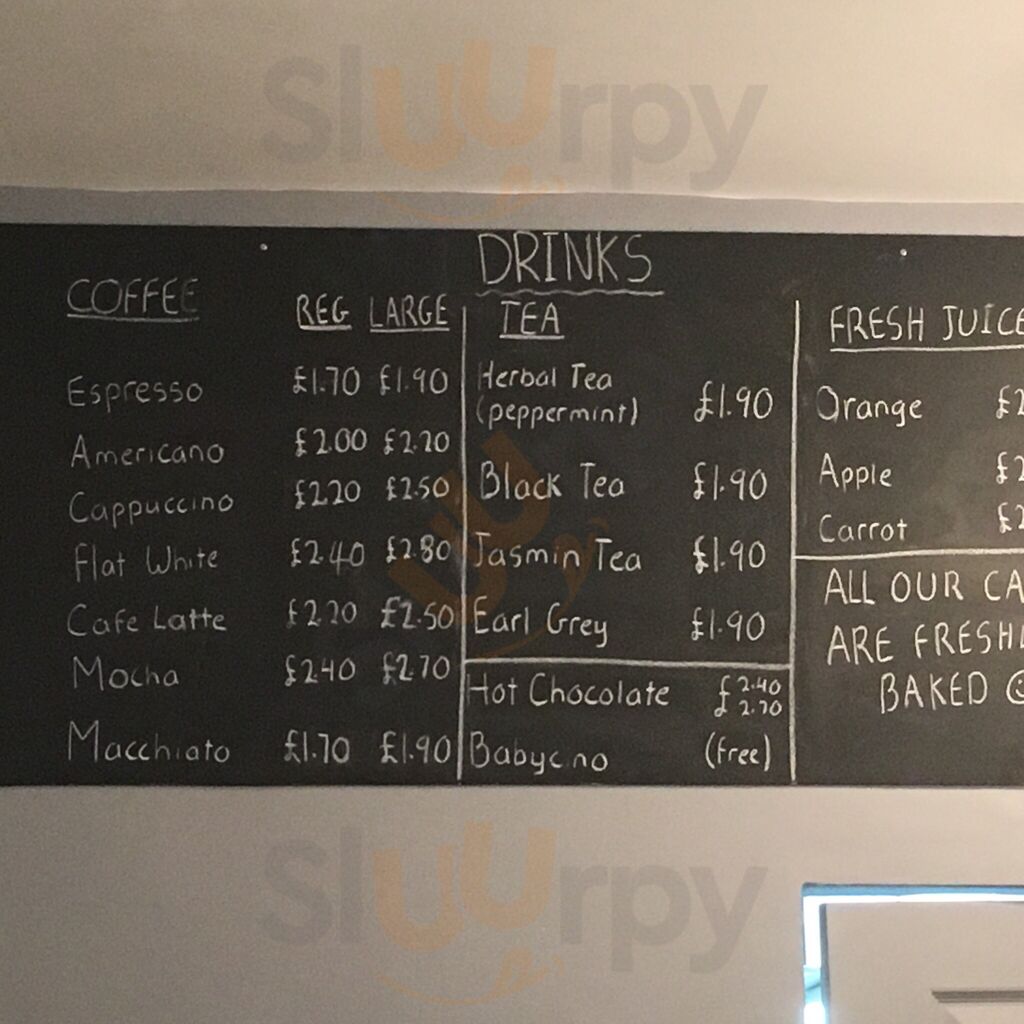 Sluurpy
DRINKS
COFFEE
REG LARGE
Espresso £1.70 £1.90
Americano £2.00 £2.20
Cappuccino £2.20 £2.50
Flat White £2.40 £2.80
Cafe Latte £2.20 £2.50
Mocha £2.40 £2.70
Macchiato £1.70 £1.90
TEA
Herbal Tea
(peppermint) £1.90
Black Tea £1.90
Jasmin Tea £1.90
Earl Grey £1.90
Hot Chocolate £2.40
£2.70
Babycino (free)
FRESH JUICE
Orange £2
Apple £2
Carrot £2
ALL OUR CA
ARE FRESH
BAKED
Sluurpy